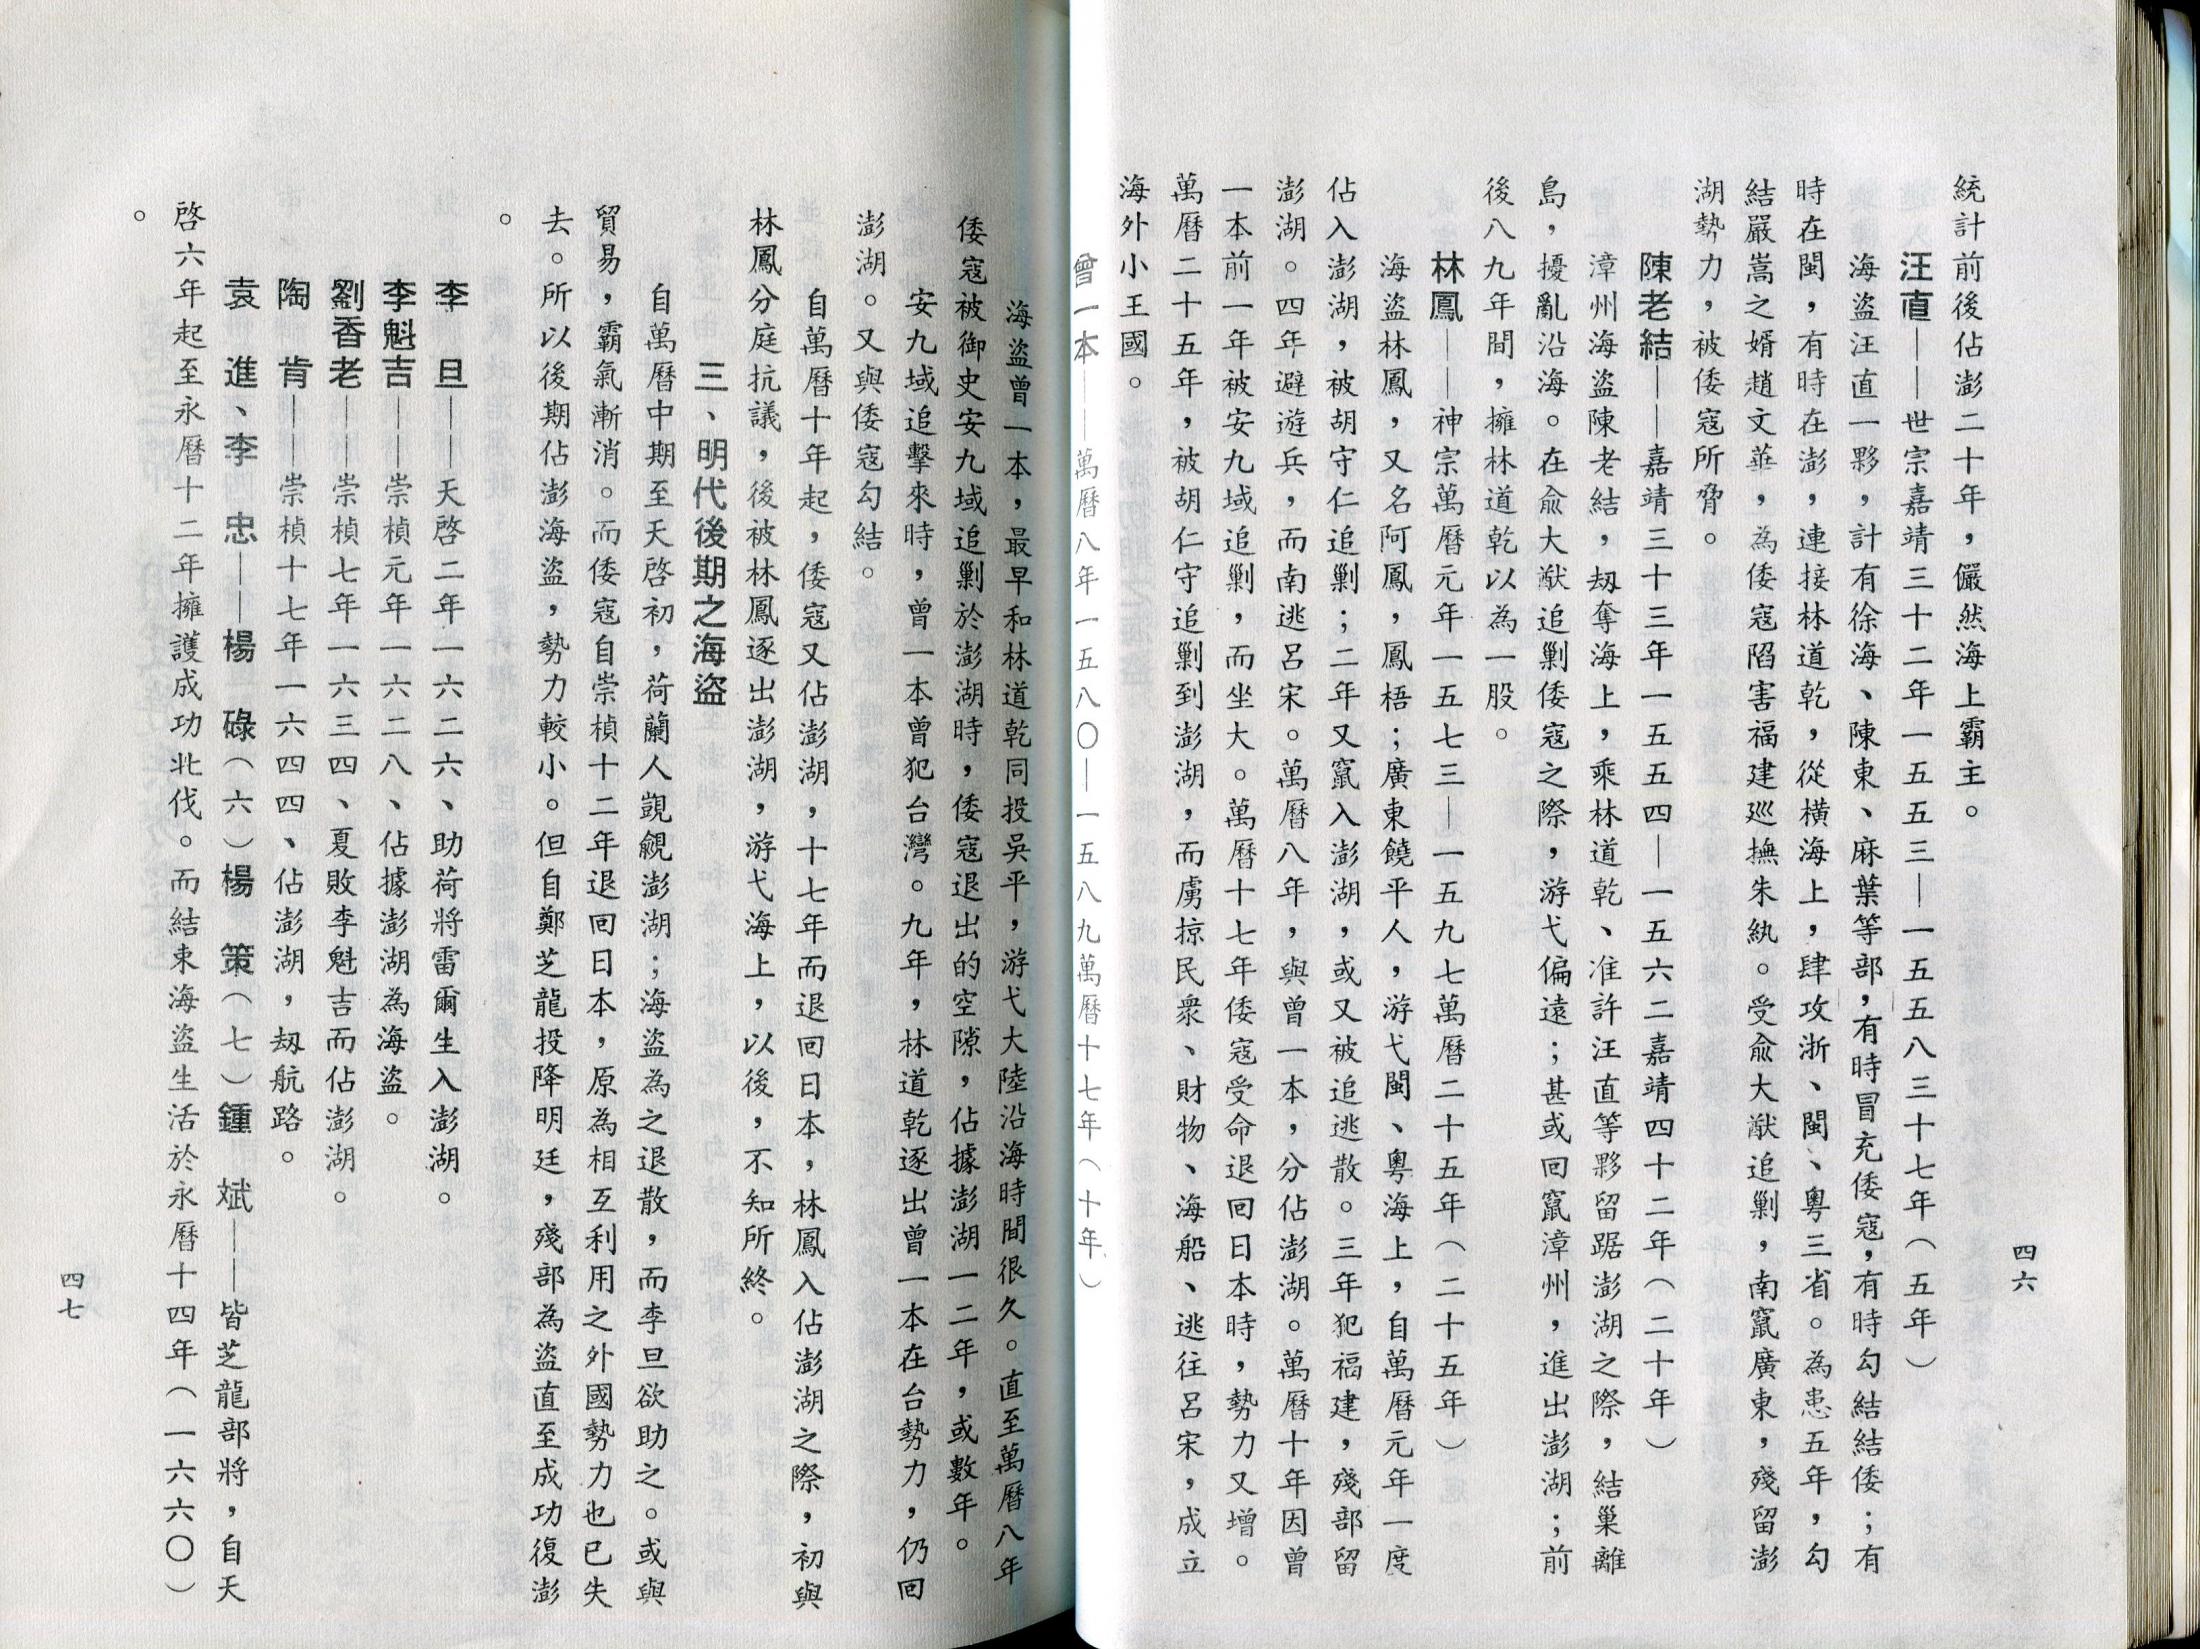 統計前後佔澎二十年，儼然海上霸主。
汪直——世宗嘉靖三十二年一五五三—一五五八三十七年（五年）
海盜汪直一夥，計有徐海、陳東、麻葉等部，有時冒充倭寇，有時勾結結倭；有
時在閩，有時在澎，連接林道乾，從橫海上，肆攻浙、閩、粵三省。為患五年，勾
結嚴嵩之婿趙文華，為倭寇陷害福建巡撫朱紈。受俞大猷追剿，南竄廣東，殘留澎
湖勢力，被倭寇所脅。
陳老結——嘉靖三十三年一五五四—一五六二嘉靖四十二年（二十年）
漳州海盜陳老結，刼奪海上，乘林道乾、准許汪直等夥留踞澎湖之際，結巢離
島，擾亂沿海。在俞大猷追剿倭寇之際，游弋偏遠；甚或回竄漳州，進出澎湖；前
後八九年間，擁林道乾以為一股。
林鳳——神宗萬曆元年一五七三—一五九七萬曆二十五年（二十五年）
海盜林鳳，又名阿鳳，鳳梧；廣東饒平人，游弋閩、粵海上，自萬曆元年一度
佔入澎湖，被胡守仁追剿；二年又竄入澎湖，或又被追逃散。三年犯福建，殘部留
澎湖。四年避遊兵，而南逃呂宋。萬曆八年，與曾一本，分佔澎湖。萬曆十年因曾
一本前一年被安九域追剿，而坐大。萬曆十七年倭寇受命退回日本時，勢力又增。
萬曆二十五年，被胡仁守追剿到澎湖，而虜掠民衆、財物、海船、逃往呂宋，成立
海外小王國。
曾一本——萬曆八年一五八〇—一五八九萬曆十七年（十年）
四六
海盜曾一本，最早和林道乾同投吳平，游弋大陸沿海時間很久。直至萬曆八年
倭寇被御史安九域追剿於澎湖時，倭寇退出的空隙，佔據澎湖一二年，或數年。
安九域追擊來時，曾一本曾犯台灣。九年，林道乾逐出曾一本在台勢力，仍回
澎湖。又與倭寇勾結。
自萬曆十年起，倭寇又佔澎湖，十七年而退回日本，林鳳入佔澎湖之際，初與
林鳳分庭抗議，後被林鳳逐出澎湖，游弋海上，以後，不知所終。
三、明代後期之海盜
自萬曆中期至天啓初，荷蘭人覬覦澎湖；海盜為之退散，而李旦欲助之。或與
貿易，霸氣漸消。而倭寇自崇楨十二年退回日本，原為相互利用之外國勢力也已失
去。所以後期佔澎海盜，勢力較小。但自鄭芝龍投降明廷，殘部為盜直至成功復澎
。
李　旦——天啓二年一六二六、助荷將雷爾生入澎湖。
李魁吉——崇楨元年一六二八、佔據澎湖為海盜。
劉香老——崇楨七年一六三四、夏敗李魁吉而佔澎湖。
陶　肯——崇楨十七年一六四四、佔澎湖，刼航路。
袁　進、李　忠——楊　碌（六）楊　策（七）鍾　斌——皆芝龍部將，自天
啓六年起至永曆十二年擁護成功北伐。而結束海盜生活於永曆十四年（一六六〇）
。
四七